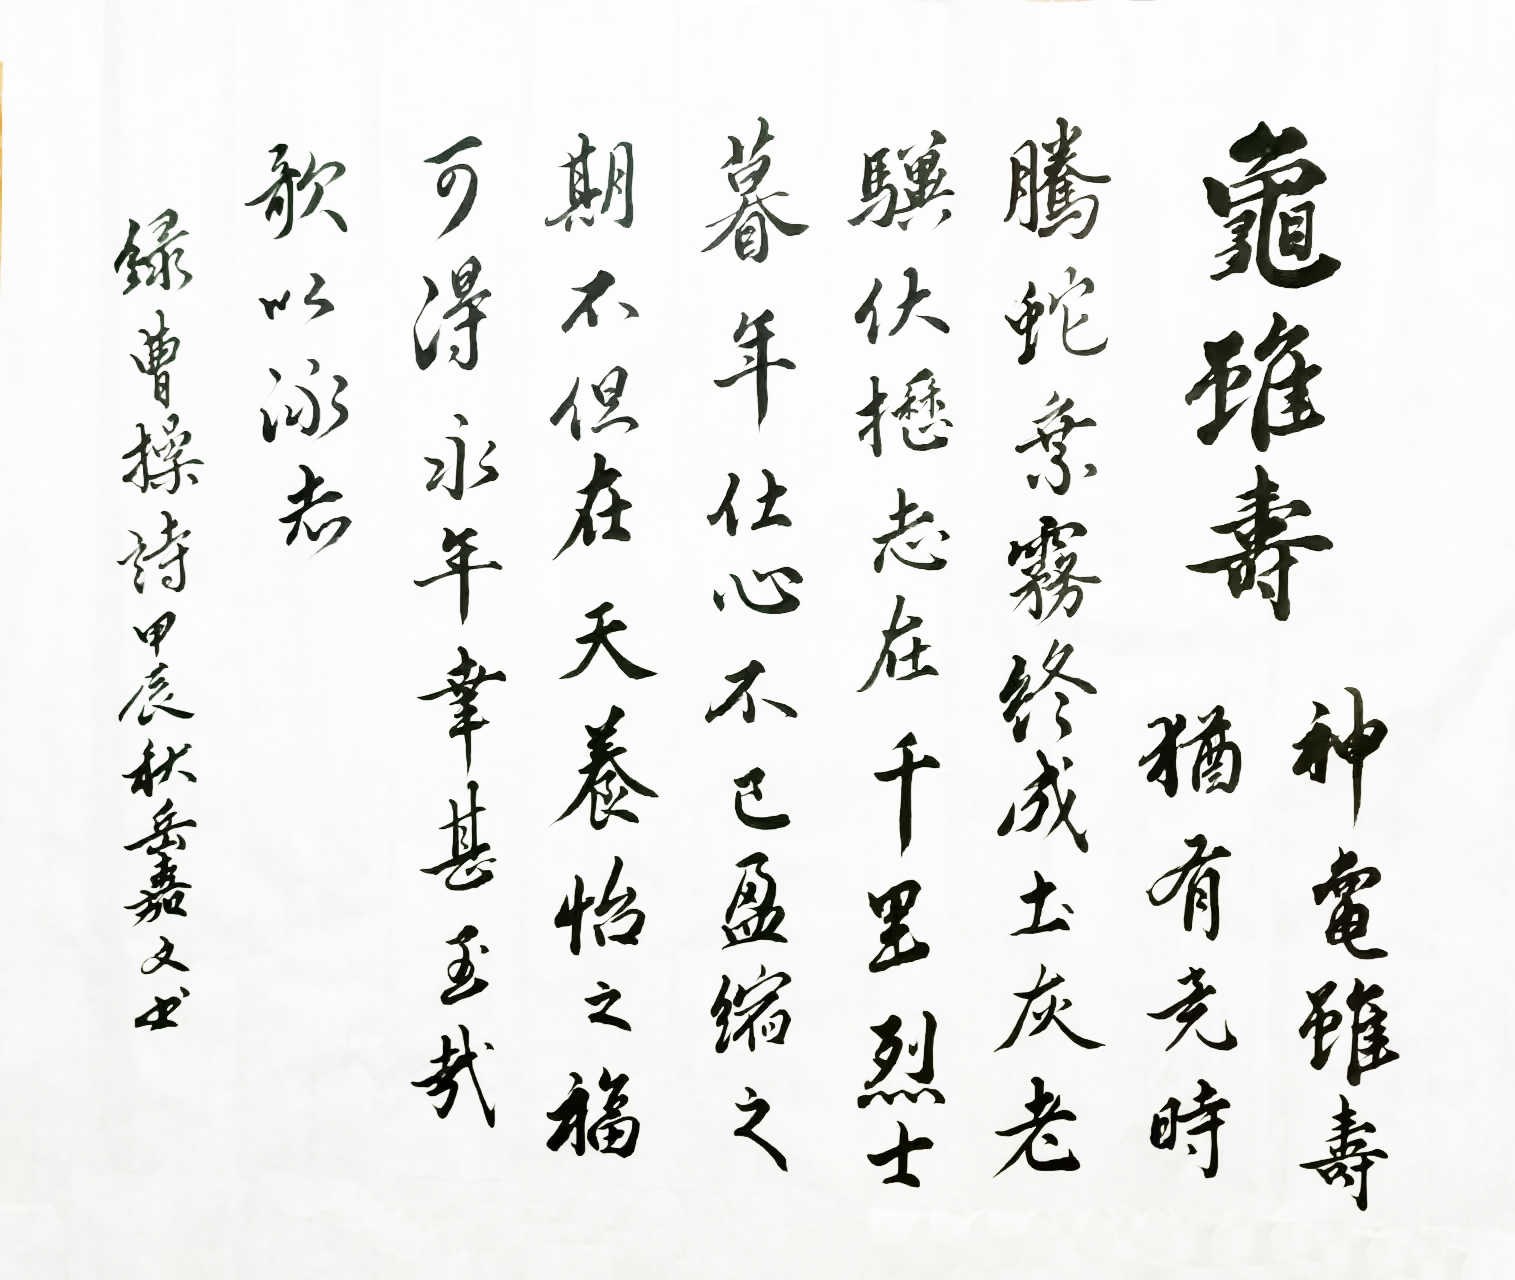 龜雖壽
神龜雖壽
猶有竟時
騰蛇乘霧終成土灰老
驥伏櫪志在千里烈士
暮年壯心不已盈縮之
期不但在天養怡之福
可得永年幸甚至哉
歌以詠志
録曹操詩甲辰秋岳嘉文书